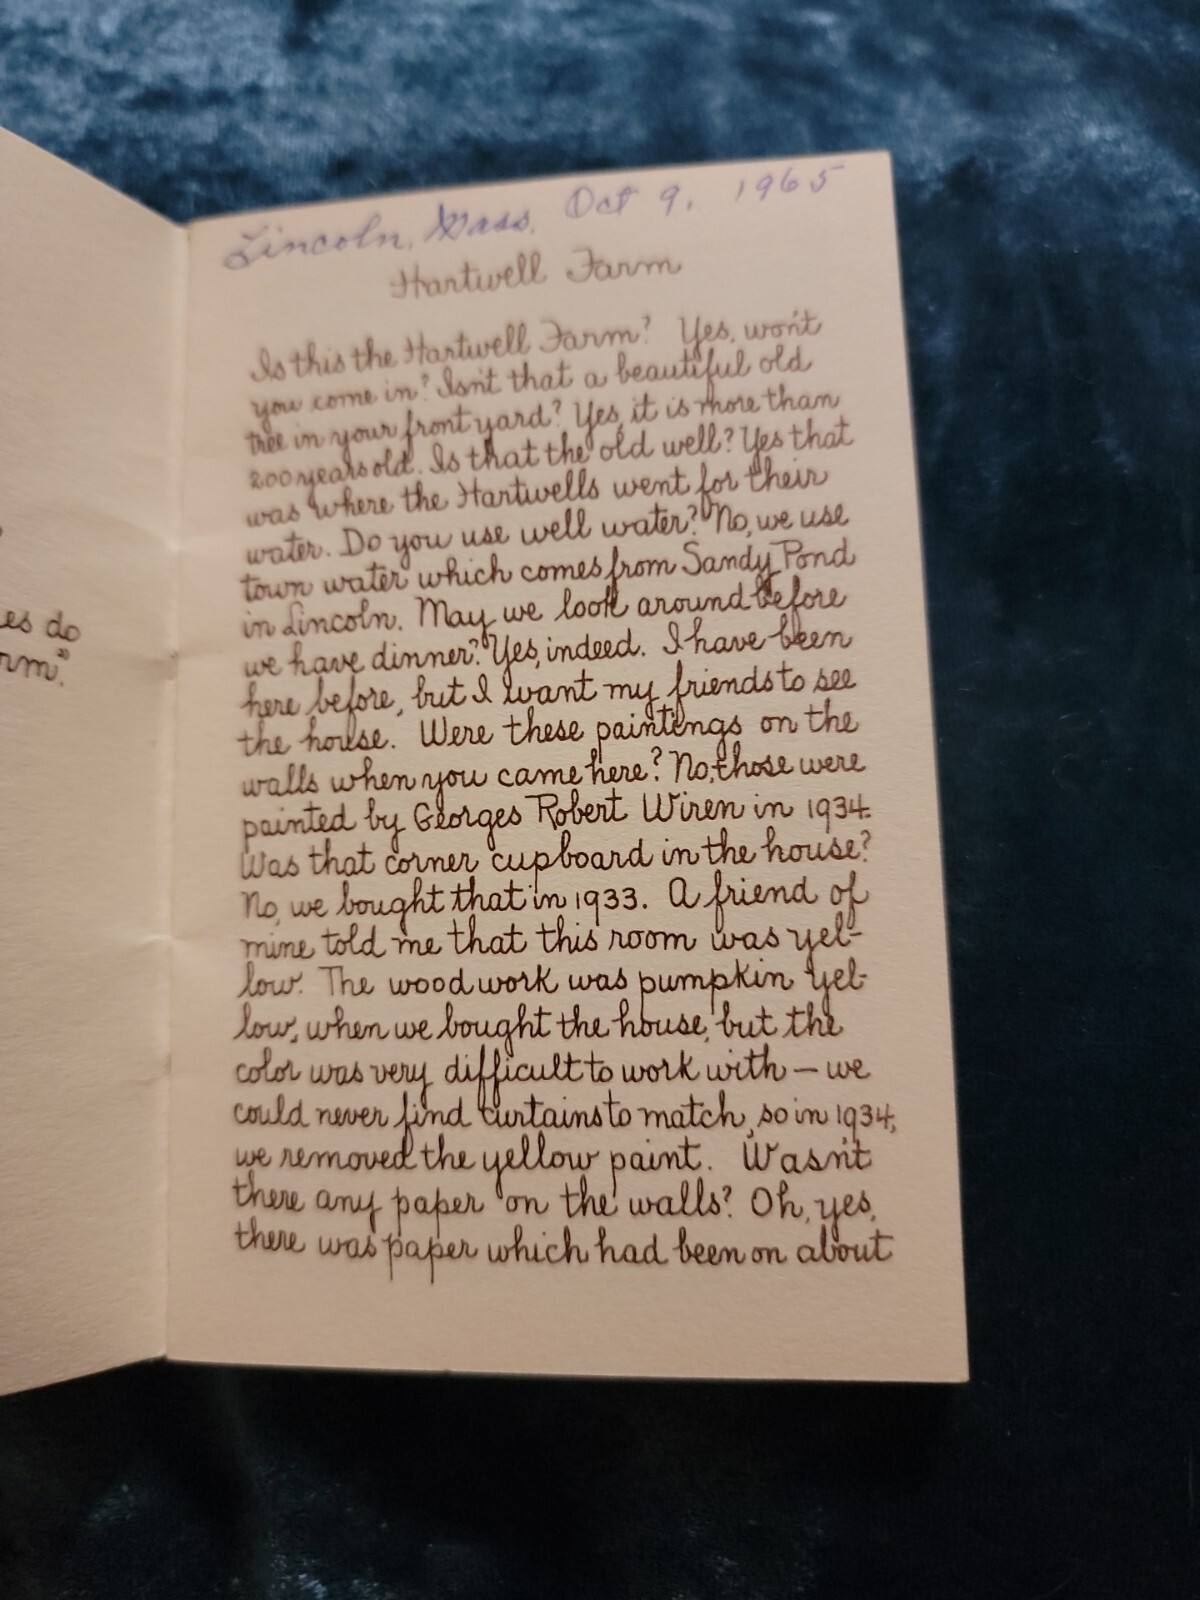 es do
rm."
Lincoln, Mass. Oct 9, 1965
Hartwell Farm
Is this the Hartwell Farm? Yes, won't
you come in? Isn't that a beautiful old
tree in your front yard? Yes, it is more than
200 years old. Is that the old well? Yes that
was where the Hartwells went for their
water. Do you use well water? No, we use
town water which comes from Sandy Pond
in Lincoln. May we look around before
we have dinner? Yes, indeed. I have been
here before, but I want my friends to see
the house. Were these paintings on the
walls when you came here? No, those were
painted by Georges Robert Wiren in 1934.
Was that corner cupboard in the house?
No, we bought that in 1933. A friend of
mine told me that this room was yel-
low. The woodwork was pumpkin yel-
low, when we bought the house, but the
color was very difficult to work with — we
could never find curtains to match, so in 1934,
we removed the yellow paint. Wasn't
there any paper on the walls? Oh, yes,
there was paper which had been on about